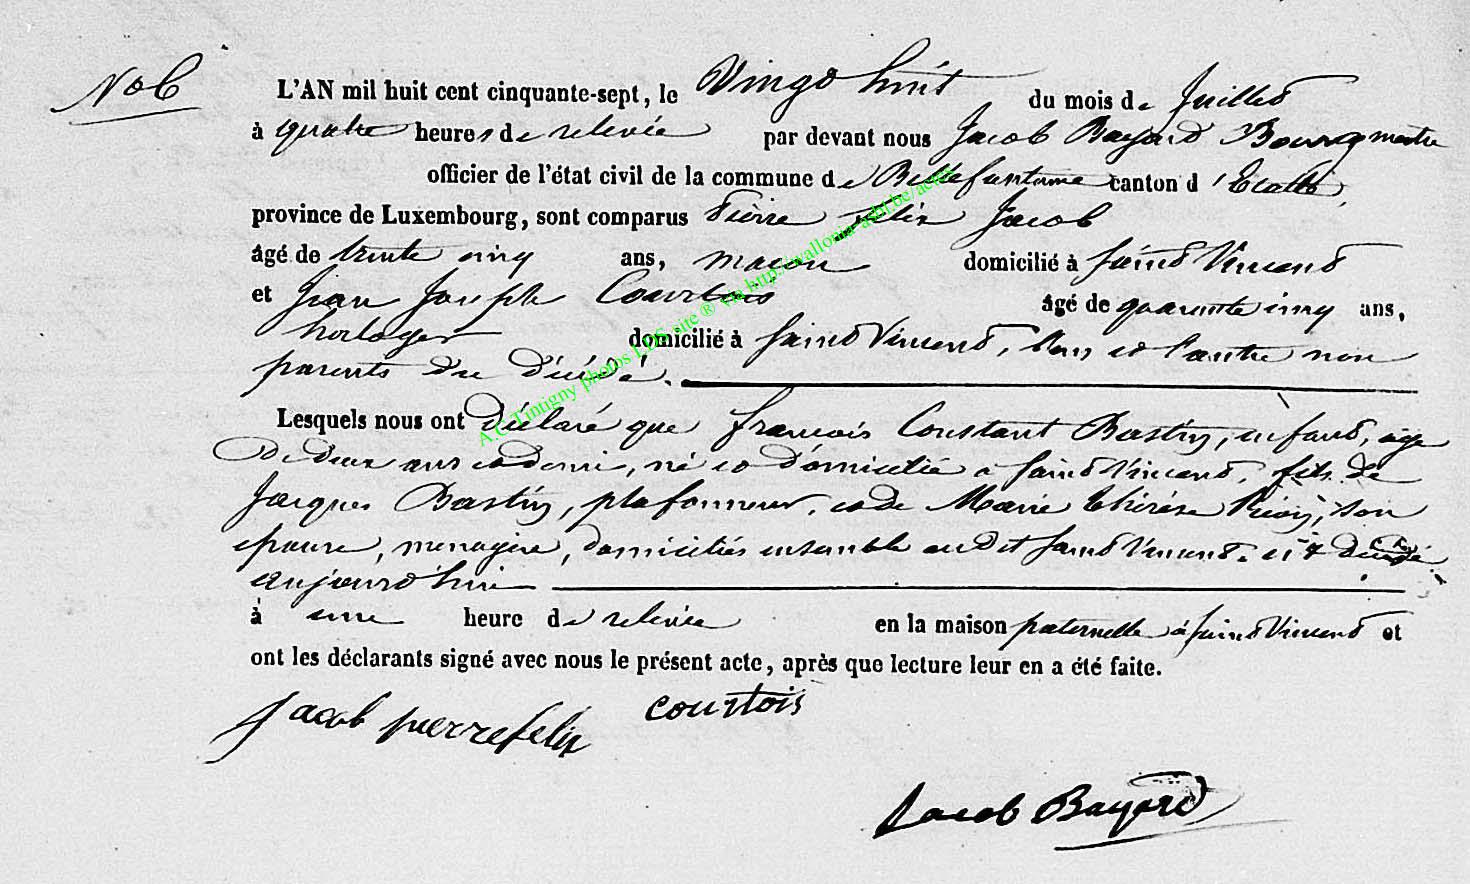 No 6
L'AN mil huit cent cinquante-sept, le Vingt huit du mois de Juillet
à quatre heures de relevée par devant nous Jacob Bayard Bourgmestre
officier de l'état civil de la commune de Bellefontaine canton d'Etalle,
province de Luxembourg, sont comparus Pierre Félix Jacob
âgé de trente cinq ans, maçon domicilié à Saint Vincent
et Jean Joseph Courtois âgé de quarante cinq ans,
horloger domicilié à Saint Vincent, l'un et l'autre non
parents du décédé.
Lesquels nous ont déclaré que François Constant Bastin, enfant, âgé
de deux ans et demi, né et domicilié à Saint Vincent, fils de
Jacques Bastin, plafonneur, et de Marie Thérèse son
épouse, ménagère, domiciliés ensemble audit Saint Vincent, est décédé
aujourd'hui
à une heure de relevée en la maison paternelle à Saint Vincent et
ont les déclarants signé avec nous le présent acte, après que lecture leur en a été faite.
Jacob pierre felix courtois
Jacob Bayard
A.C. Tintigny photos LDS site ® via http://wallonia-asbl.be/actes